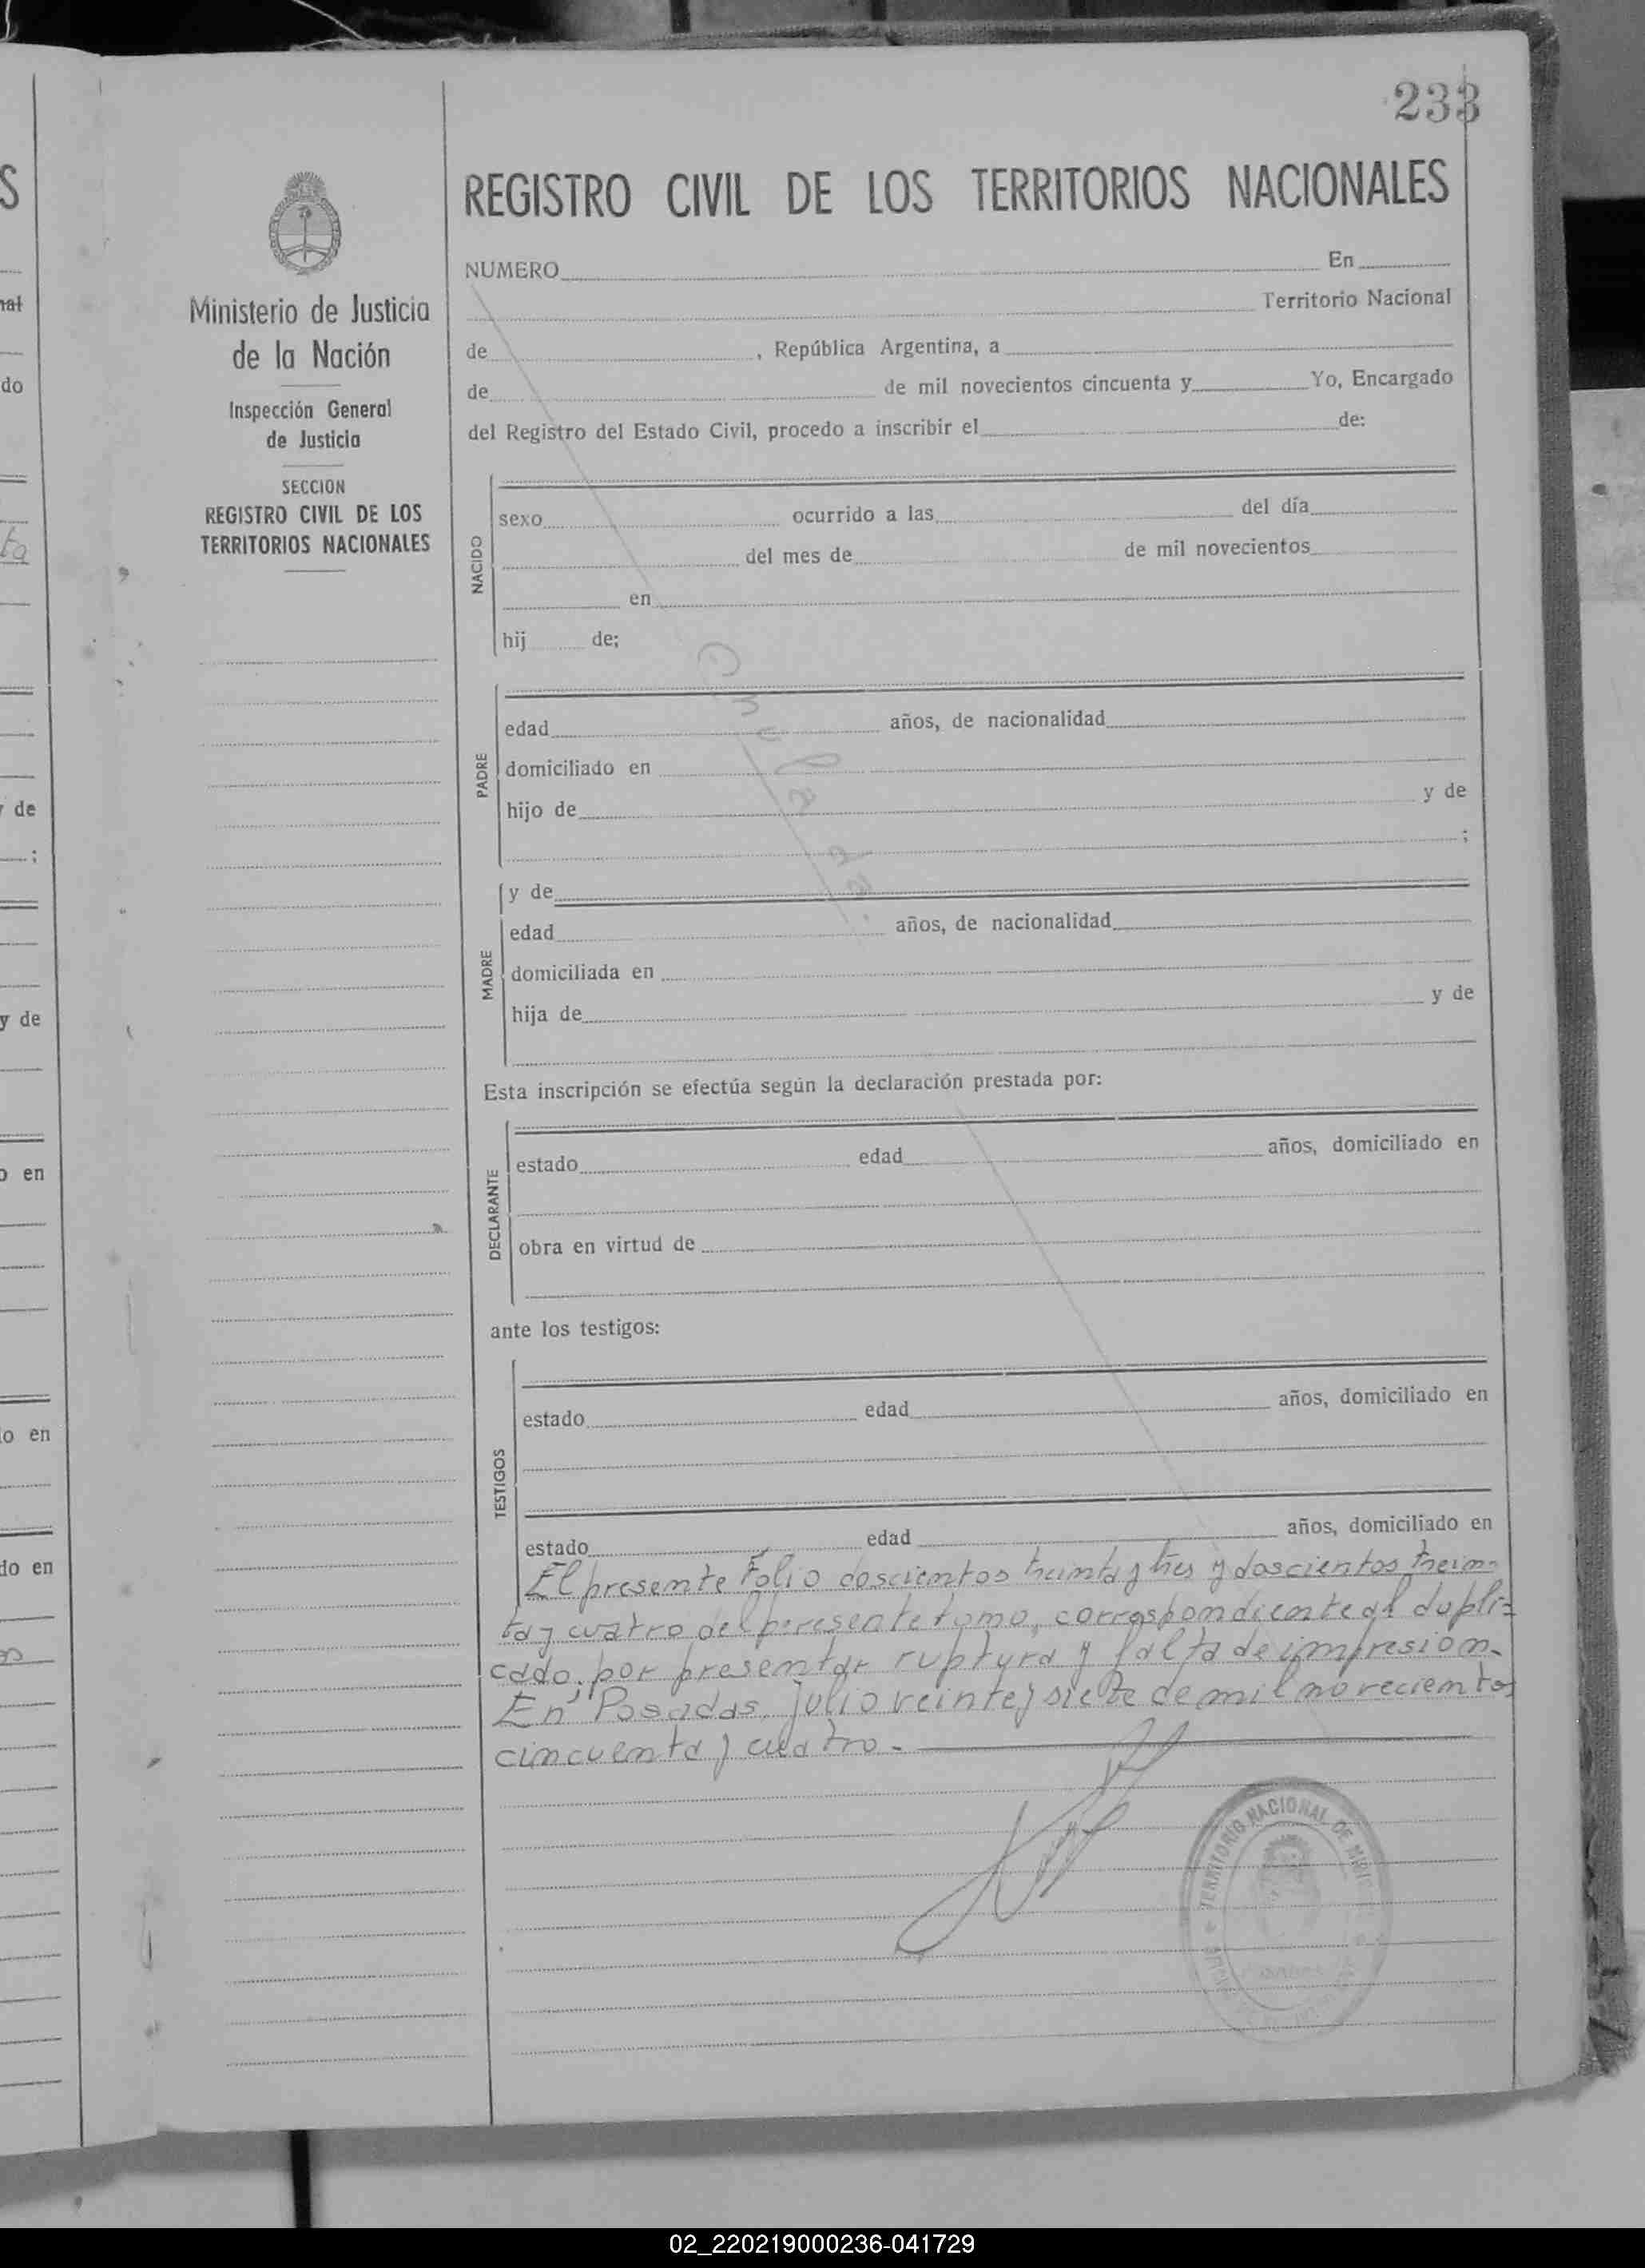 233
REGISTRO CIVIL DE LOS TERRITORIOS NACIONALES
NUMERO En
Territorio Nacional
de , República Argentina, a
de de mil novecientos cincuenta y Yo, Encargado
del Registro del Estado Civil, procedo a inscribir el de:
Ministerio de Justicia
de la Nación
Inspección General
de Justicia
SECCION
REGISTRO CIVIL DE LOS
TERRITORIOS NACIONALES
NACIDO
sexo ocurrido a las del día
del mes de de mil novecientos
en
hij de;
Anulado.
PADRE
edad años, de nacionalidad
domiciliado en
hijo de y de
;
MADRE
y de
edad años, de nacionalidad
domiciliada en
hija de y de
Esta inscripción se efectúa según la declaración prestada por:
DECLARANTE
estado edad años, domiciliado en
obra en virtud de
ante los testigos:
TESTIGOS
estado edad años, domiciliado en
estado edad años, domiciliado en
El presente Folio doscientos treinta y tres y doscientos trein-
ta y cuatro del presente tomo, correspondiente al dupli-
cado, por presentar ruptura y falta de impresion.
En Posadas, julio veinte y siete de mil novecientos
cincuenta y cuatro.-
TERRITORIO NACIONAL DE
S
nal
do
ta
y de
;
y de
o en
do en
do en
02_220219000236-041729